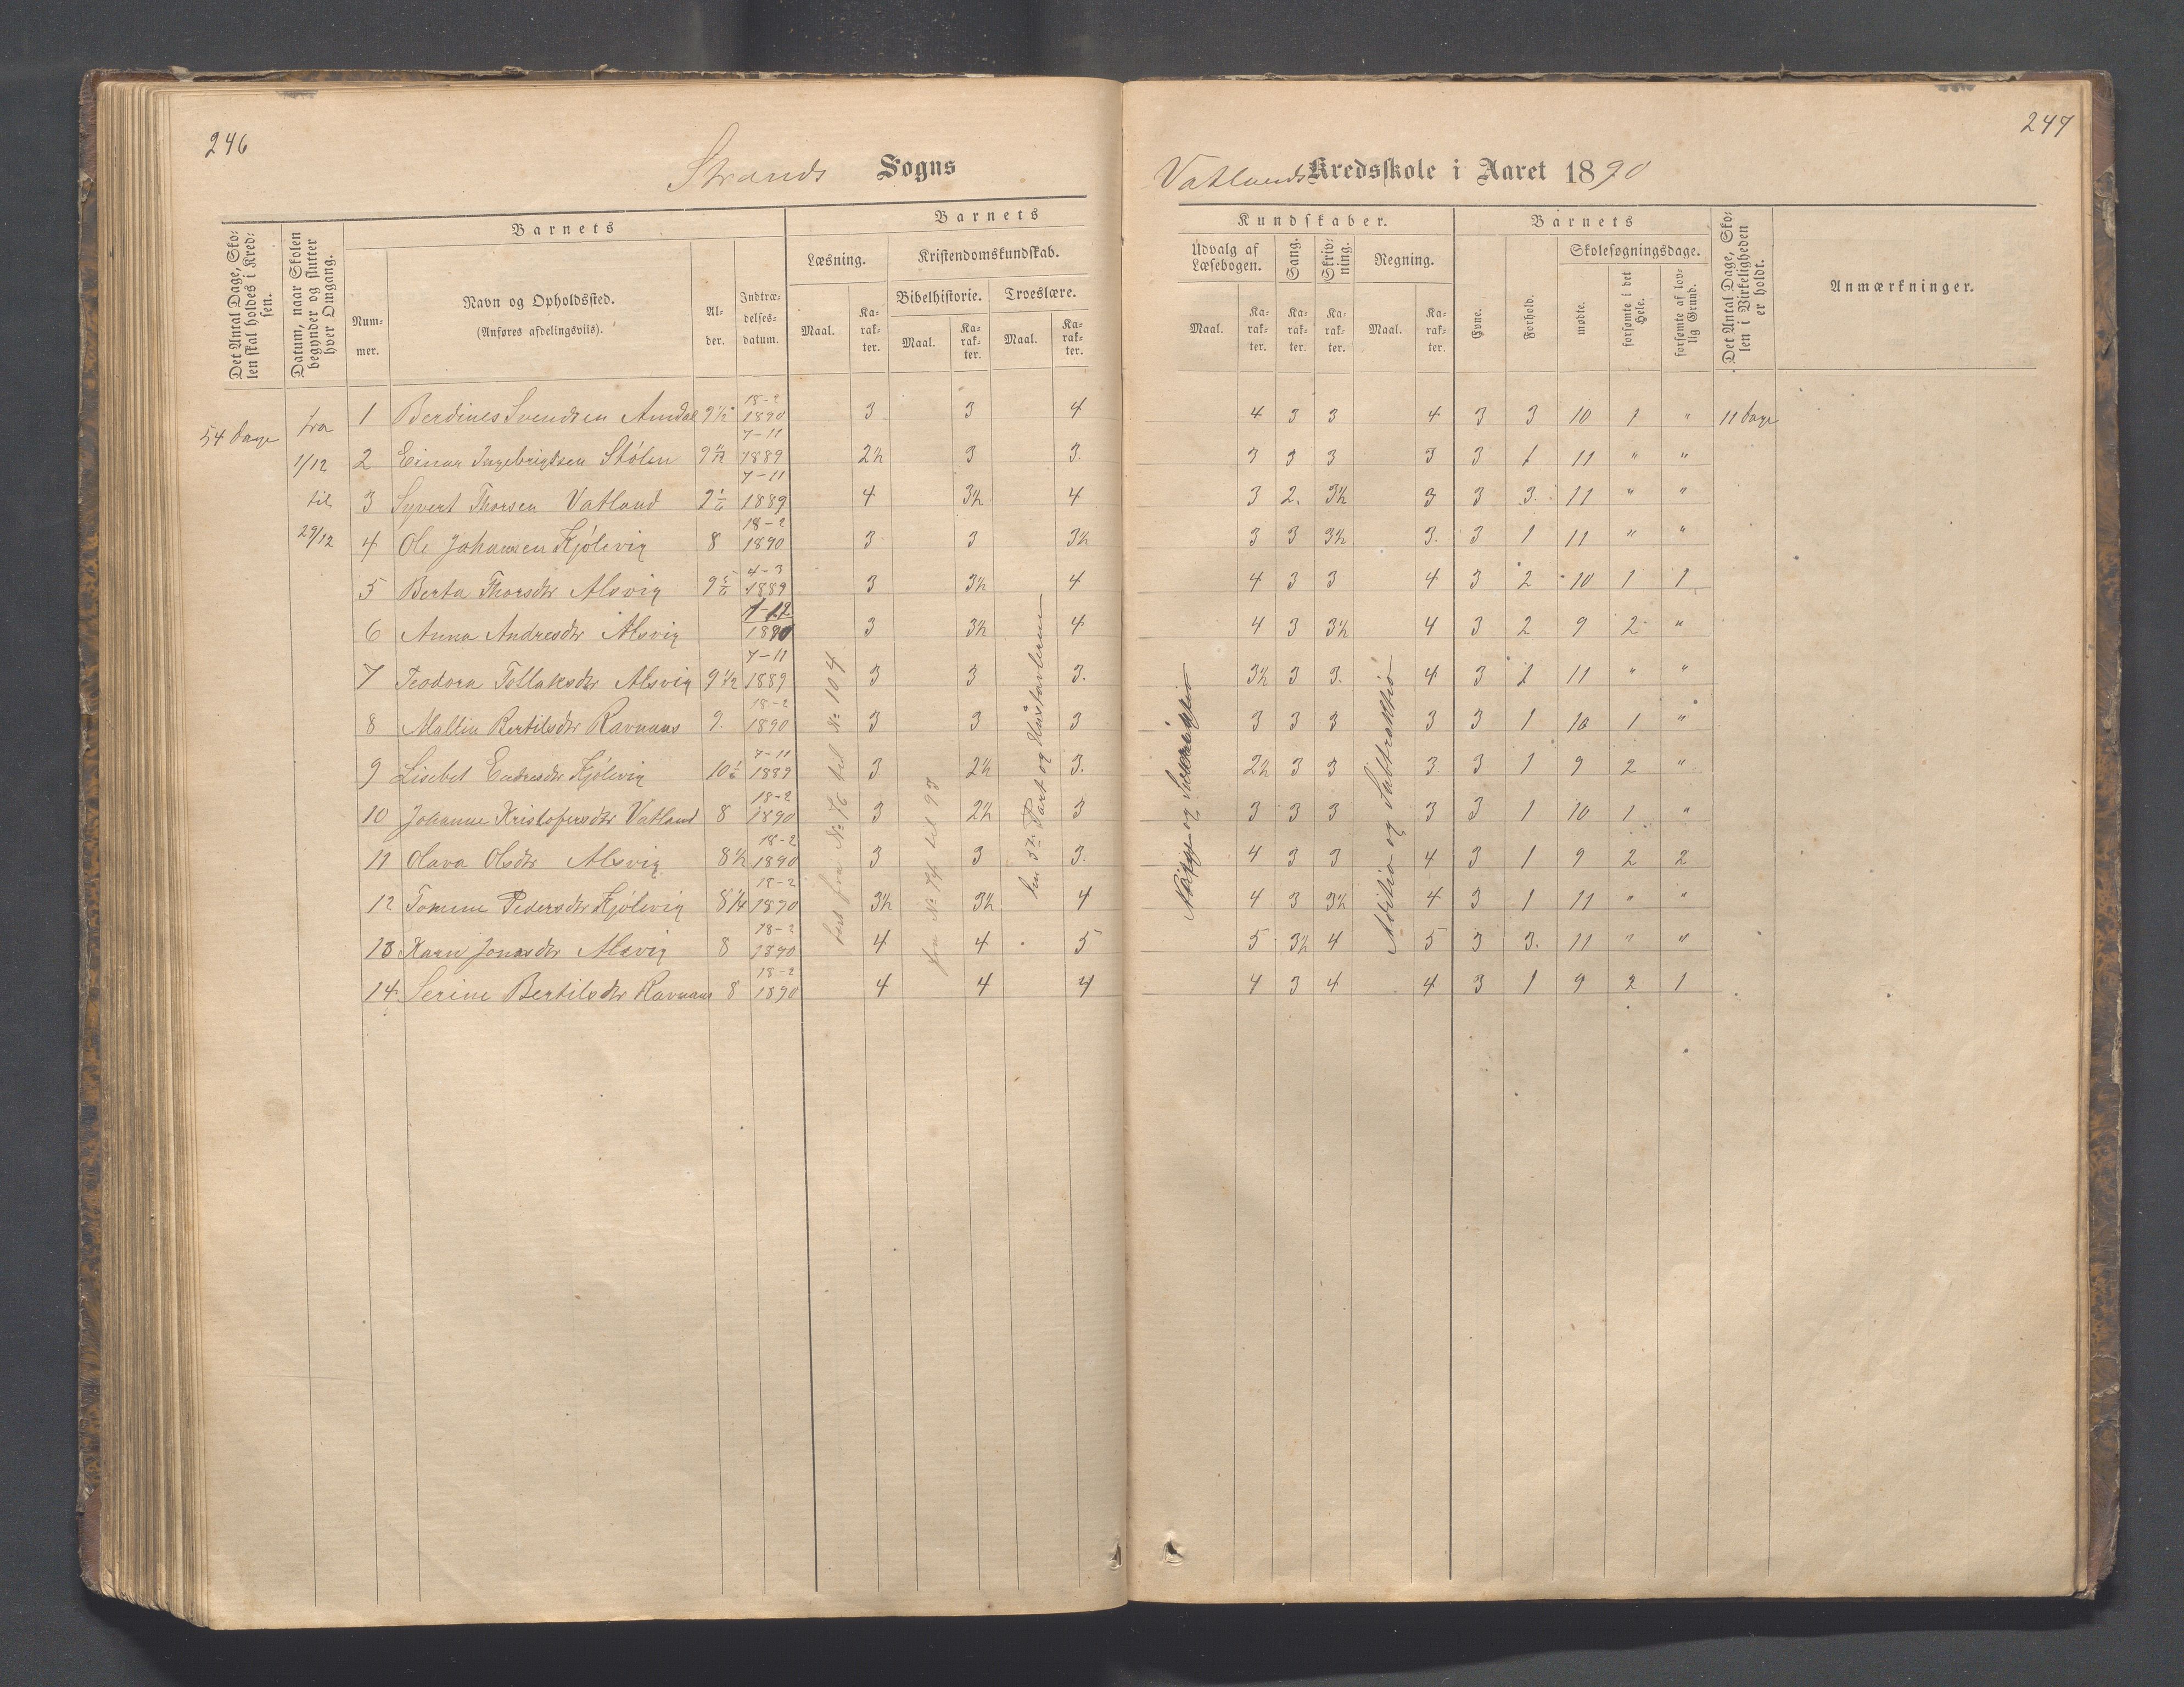 246
Strands Sogns
Det Antal Dage, Sko-
len skal holdes i Kred-
sen.
Datum, naar Skolen
begynder og slutter
hver Omgang.
Barnets
Num-
mer.
Navn og Opholdssted.
(Anføres afdelingsviis).
Al-
der.
Indtræ-
delses-
datum.
Barnets
Læsning.
Kristendomskundskab.
Bibelhistorie.
Troeslære.
Maal.
Ka-
rak-
ter.
Maal.
Ka-
rak-
ter.
Maal.
Ka-
rak-
ter.
54 Dage
fra
1/12
til
29/12
1 Berdines Svendsen Amdal 9 1/2 18-2 1890 3 3 4
2 Einar Ingebrigtsen Stølen 9 7-11 1889 2½ 3 3.
3 Syvert Thorsen Vatland 9 1/6 7-11 1889 4 3½ 4
4 Ole Johansen Kjølevig 8 18-2 1890 3 3 3½
5 Berta Thorsdtr Alsvig 9 5/6 4-3 1889 3 3½ 4
6 Anna Andresdtr Alsvig 1-12 1890 3 3½ 4
7 Teodora Tollaksdtr Alsvig 9 1/12 7-11 1889 3 3 3.
8 Maltin Bertilsdtr Ravnaas 9. 18-2 1890 3 3 3
9 Lisebet Endresdtr Kjølevig 10 1/6 7-11 1889 3 2½ 3.
10 Johanne Kristofersdtr Vatland 8 18-2 1890 3 2½ 3
11 Olava Olsdtr Alsvig 8½ 18-2 1890 3 3 3.
12 Tomine Pedersdtr Kjølevig 8¼ 18-2 1890 3½ 3½ 4
13 Karn Jonasdtr Alsvig 8 18-2 1890 4 4 5
14 Serine Bertilsdtr Ravnaas 8 18-2 1890 4 4 4
læst fra No 76 til No 104
fra No 74 til 93
den 3die Part og Hustavlerne
247
Vatlands Kredsskole i Aaret 1890
Kundskaber.
Udvalg af
Læsebogen.
Sang.
Skriv-
ning.
Regning.
Maal.
Ka-
rak-
ter.
Ka-
rak-
ter.
Ka-
rak-
ter.
Maal.
Ka-
rak-
ter.
Barnets
Evne.
Forhold.
Skolesøgningsdage.
mødte.
forsømte i det
Hele.
forsømte af lov-
lig Grund.
Det Antal Dage, Sko-
len i Virkeligheden
er holdt.
Anmærkninger.
4 3 3 4 3 3 10 1 " 11 Dage
3 3 3 3 3 1 11 " "
3 2. 3½ 3 3 3. 11 " "
3 3 3½ 3. 3 1 11 " "
4 3 3 4 3 2 10 1 1
4 3 3½ 4 3 2 9 2 "
3½ 3 3. 4 3 1 11 " "
3 3 3 3 3 1 10 1 "
2½ 3 3 3. 3 1 9 2 "
3 3 3 3 3 1 10 1 "
4 3 3 4 3 1 9 2 2
4 3 3½ 4 3 1 11 " "
5 3½ 4 5 3 3. 11 " "
4 3 4 4 3 1 9 2 1
Norge og
Aditio og Subtraktio